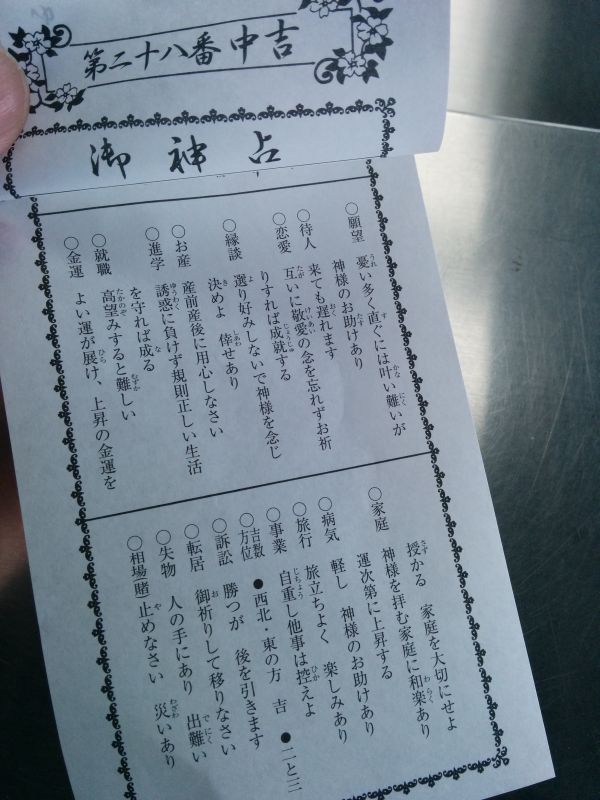 第二十八番 中吉
御神占
○願望 憂い多く直ぐには叶い難いが
神様のお助けあり
○待人 来ても遅れます
○恋愛 互いに敬愛の念を忘れずお祈
りすれば成就する
○縁談 選り好みしないで神様を念じ
決めよ 倖せあり
○お産 産前産後に用心しなさい
○進学 誘惑に負けず規則正しい生活
を守れば成る
○就職 高望みすると難しい
○金運 よい運が展け、上昇の金運を
授かる 家庭を大切にせよ
○家庭 神様を拝む家庭に和楽あり
運次第に上昇する
○病気 軽し 神様のお助けあり
○旅行 旅立ちよく 楽しみあり
○事業 自重し他事は控えよ
○吉数方位 ●西北・東の方 吉 ●二と三
○訴訟 勝つが 後を引きます
○転居 御祈りして移りなさい
○失物 人の手にあり 出難い
○相場(賭) 止めなさい 災いあり